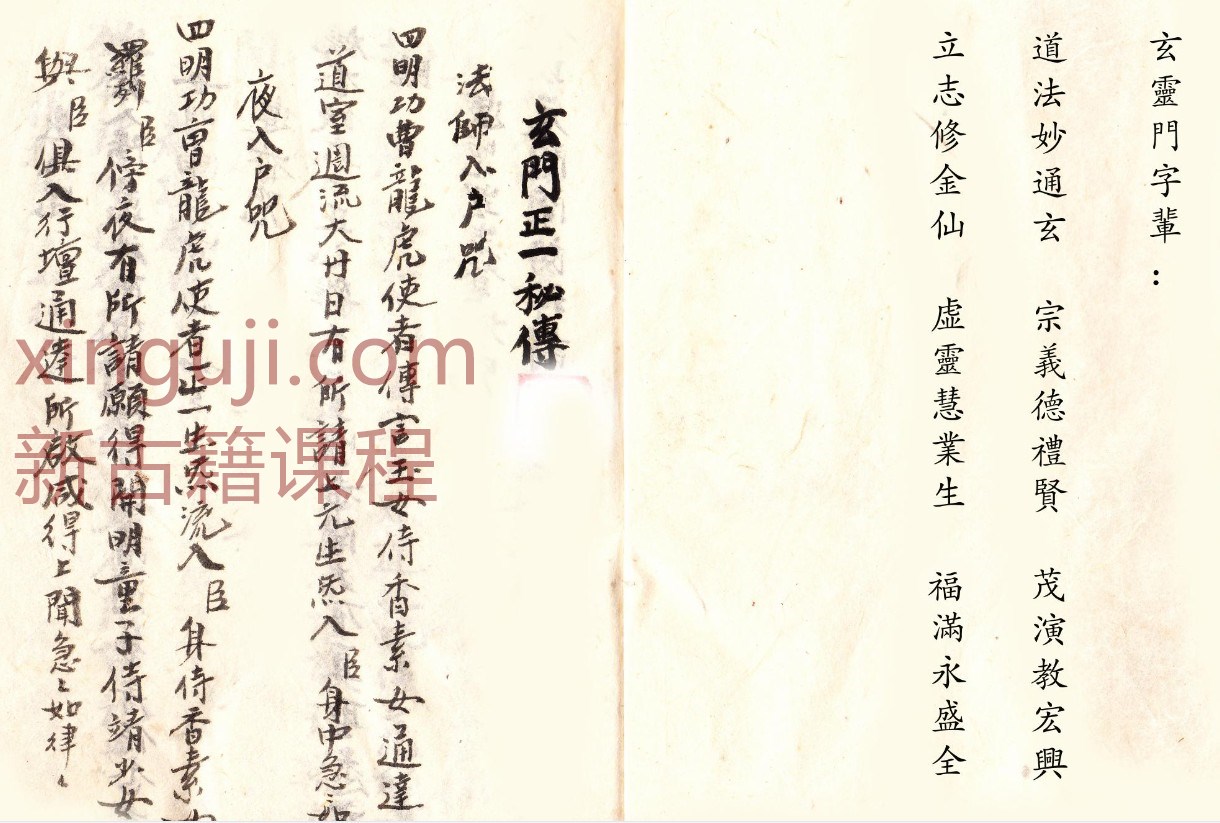 玄靈門字輩：
道法妙通玄 宗義德禮賢 茂演教宏興
立志修金仙 虛靈慧業生 福滿永盛全
玄門正一秘傳
法師入户咒
四明功曹龍虎使者傳言玉女侍香素女通達
道室週流大丹日有所請上元生炁入臣身中急ミ如
夜入户咒
四明功曹龍虎使者正一生炁流入臣身侍香素女
羅列臣傍夜有所請願得開明童子侍靖少女
與臣俱入行壇通達所啟咸得上聞急〻如律〻
xinguji.com
新古籍课程